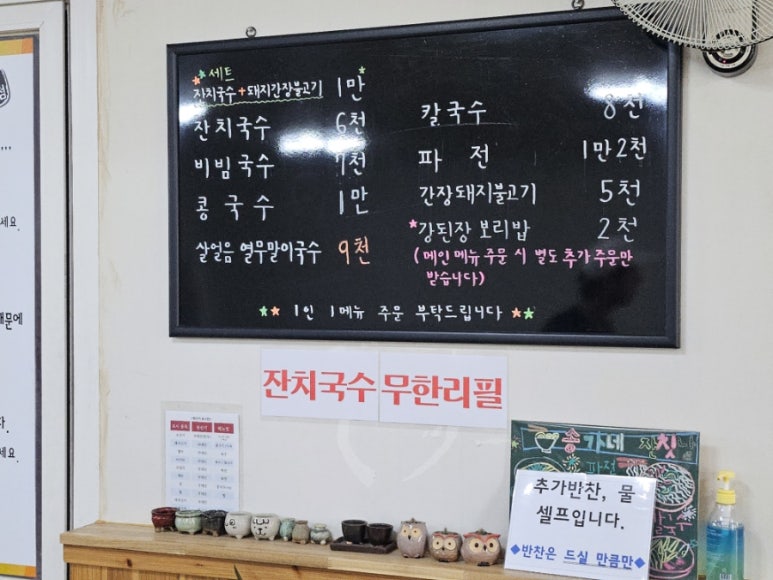 세트
잔치국수+돼지간장불고기 1만
잔치국수 6천
비빔국수 7천
콩국수 1만
살얼음 열무말이국수 9천
칼국수 8천
파전 1만2천
간장돼지불고기 5천
*강된장 보리밥 2천
(메인메뉴 주문 시 별도 추가 주문만
받습니다)
1인 1메뉴 주문 부탁드립니다
잔치국수 무한리필
송가네 잔칫
파전
추가반찬, 물
셀프입니다.
◆반찬은 드실 만큼만◆
세요.
때문에
세요.